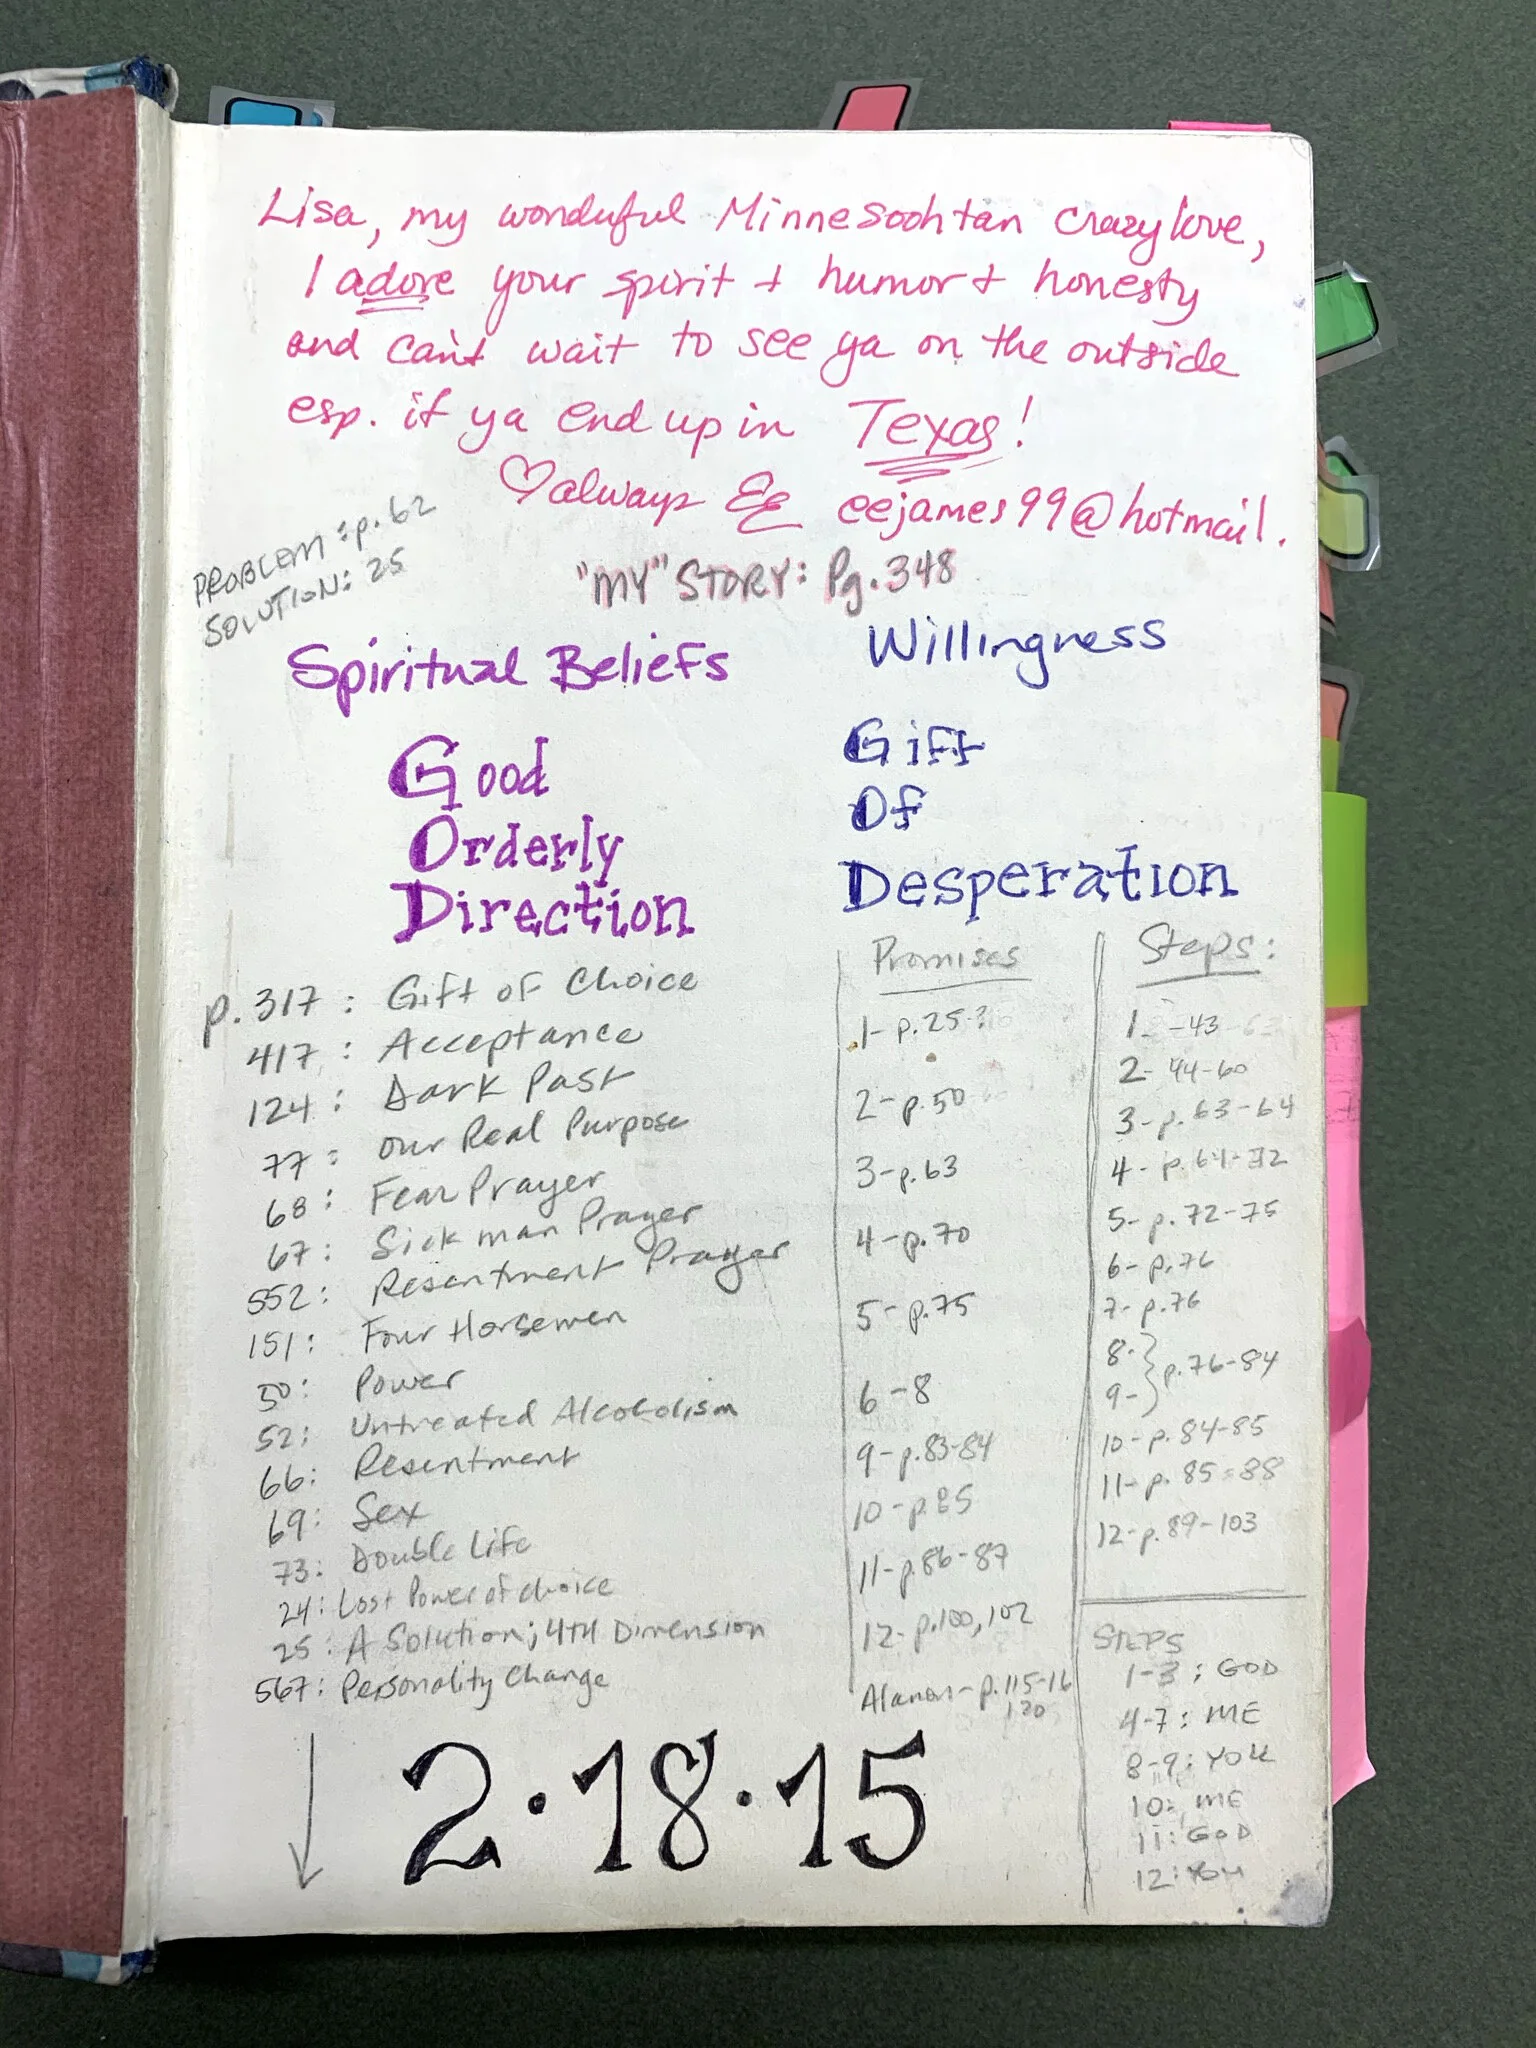 Lisa, my wonduful Minnesoohtan crazy love,
I adore your spirit + humor + honesty
and can't wait to see ya on the outside
esp. if ya end up in Texas!
♡always EE eejames99@hotmail.
PROBLEM: p. 62
SOLUTION: 25
"MY" STORY: Pg. 348
Spiritual Beliefs
Good
Orderly
Direction
Willingness
Gift
Of
Desperation
p. 317: Gift of Choice
417: Acceptance
124: Dark Past
77: Our Real Purpose
68: Fear Prayer
67: Sick man Prayer
552: Resentment Prayer
151: Four Horsemen
50: Power
52: Untreated Alcoholism
66: Resentment
69: Sex
73: Double Life
24: Lost Power of choice
25: A Solution; 4TH Dimension
567: Personality Change
Promises
1- p. 25-
2- p. 50
3- p. 63
4- p. 70
5- p. 75
6-8
9- p. 83-84
10- p. 85
11- p. 86-87
12- p. 100, 102
Alanon- p. 115-16
120
Steps:
1 -43
2- 44-60
3- p. 63-64
4- p. 64-72
5- p. 72-75
6- p. 76
7- p. 76
8-
9- } p. 76-84
10- p. 84-85
11- p. 85-88
12- p. 89-103
STEPS
1-3: GOD
4-7: ME
8-9: YOU
10: ME
11: GOD
12: YOU
2·18·15